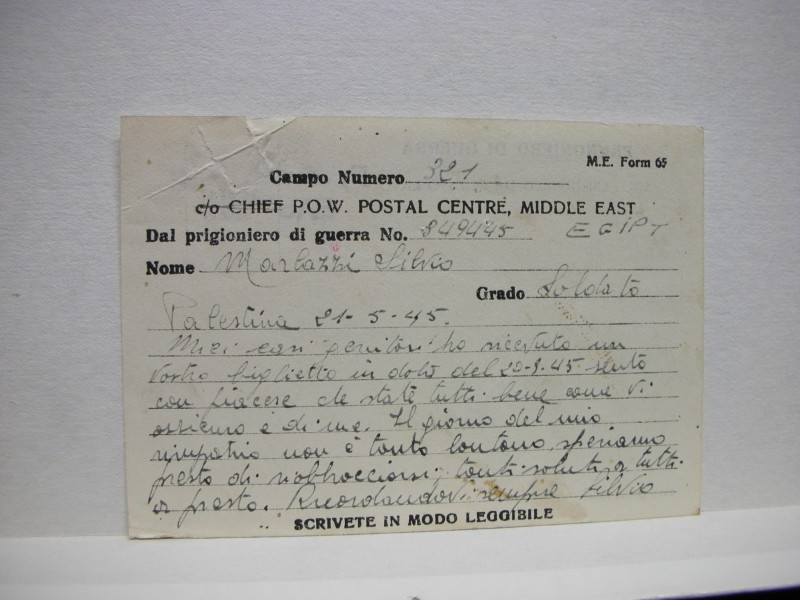 M.E. Form 65
Campo Numero 321
c/o CHIEF P.O.W. POSTAL CENTRE, MIDDLE EAST
Dal prigioniero di guerra No. 349445 EGIPT
Nome Marbazzi Silvio
Grado Soldato
Palestina 21-5-45.
Miei cari genitori ho ricevuto un
vostro biglietto in data del 20-3-45 sento
con piacere che state tutti bene come vi
assicuro è di me. Il giorno del mio
rimpatrio non è tanto lontano speriamo
presto di riabbracciarsi, tanti saluti a tutti
a presto. Ricordandovi sempre Silvio
SCRIVETE IN MODO LEGGIBILE